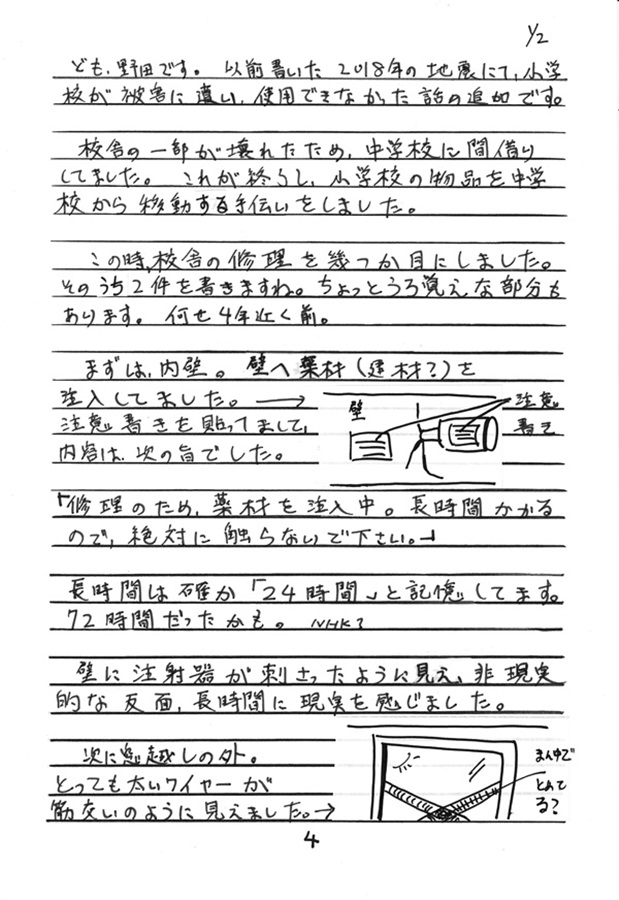 1/2
ども、野田です。 以前書いた2018年の地震にて、小学
校が被害に遭い、使用できなかった話の追加です。
校舎の一部が壊れたため、中学校に間借り
してました。 これが終うし、小学校の物品を中学
校から移動する手伝いをしました。
この時、校舎の修理を幾つか目にしました。
そのうち2件を書きますね。ちょっとうろ覚えな部分も
あります。 何せ4年近く前。
まずは、内壁。 壁へ薬材(建材?)を
注入してました。 →
注意書きを貼ってまして、
内容は、次の旨でした。
壁
注意
書き
「修理のため、薬材を注入中。長時間かかる
ので、絶対に触らないで下さい。」
長時間は確か「24時間」と記憶してます。
72時間だったかも。 NHK?
壁に注射器が刺さったように見え、非現実
的な反面、長時間に現実を感じました。
次に窓越しの外。
とっても太いワイヤーが
筋交いのように見えました。→
まん中で
とめて
る?
4